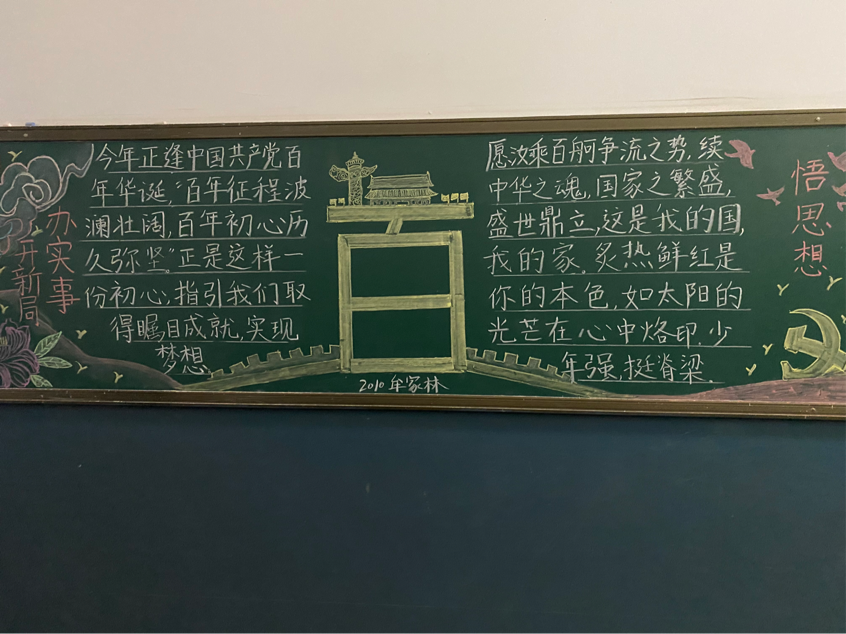 办实事
开新局
今年正逢中国共产党百
年华诞，“百年征程波
澜壮阔，百年初心历
久弥坚”正是这样一
份初心，指引我们取
得瞩目成就，实现
梦想
百
2010 年家林
愿汝乘百舸争流之势，续
中华之魂，国家之繁盛，
盛世鼎立，这是我的国，
我的家。炙热鲜红是
你的本色，如太阳的
光芒在心中烙印。少
年强，挺脊梁。
悟思想